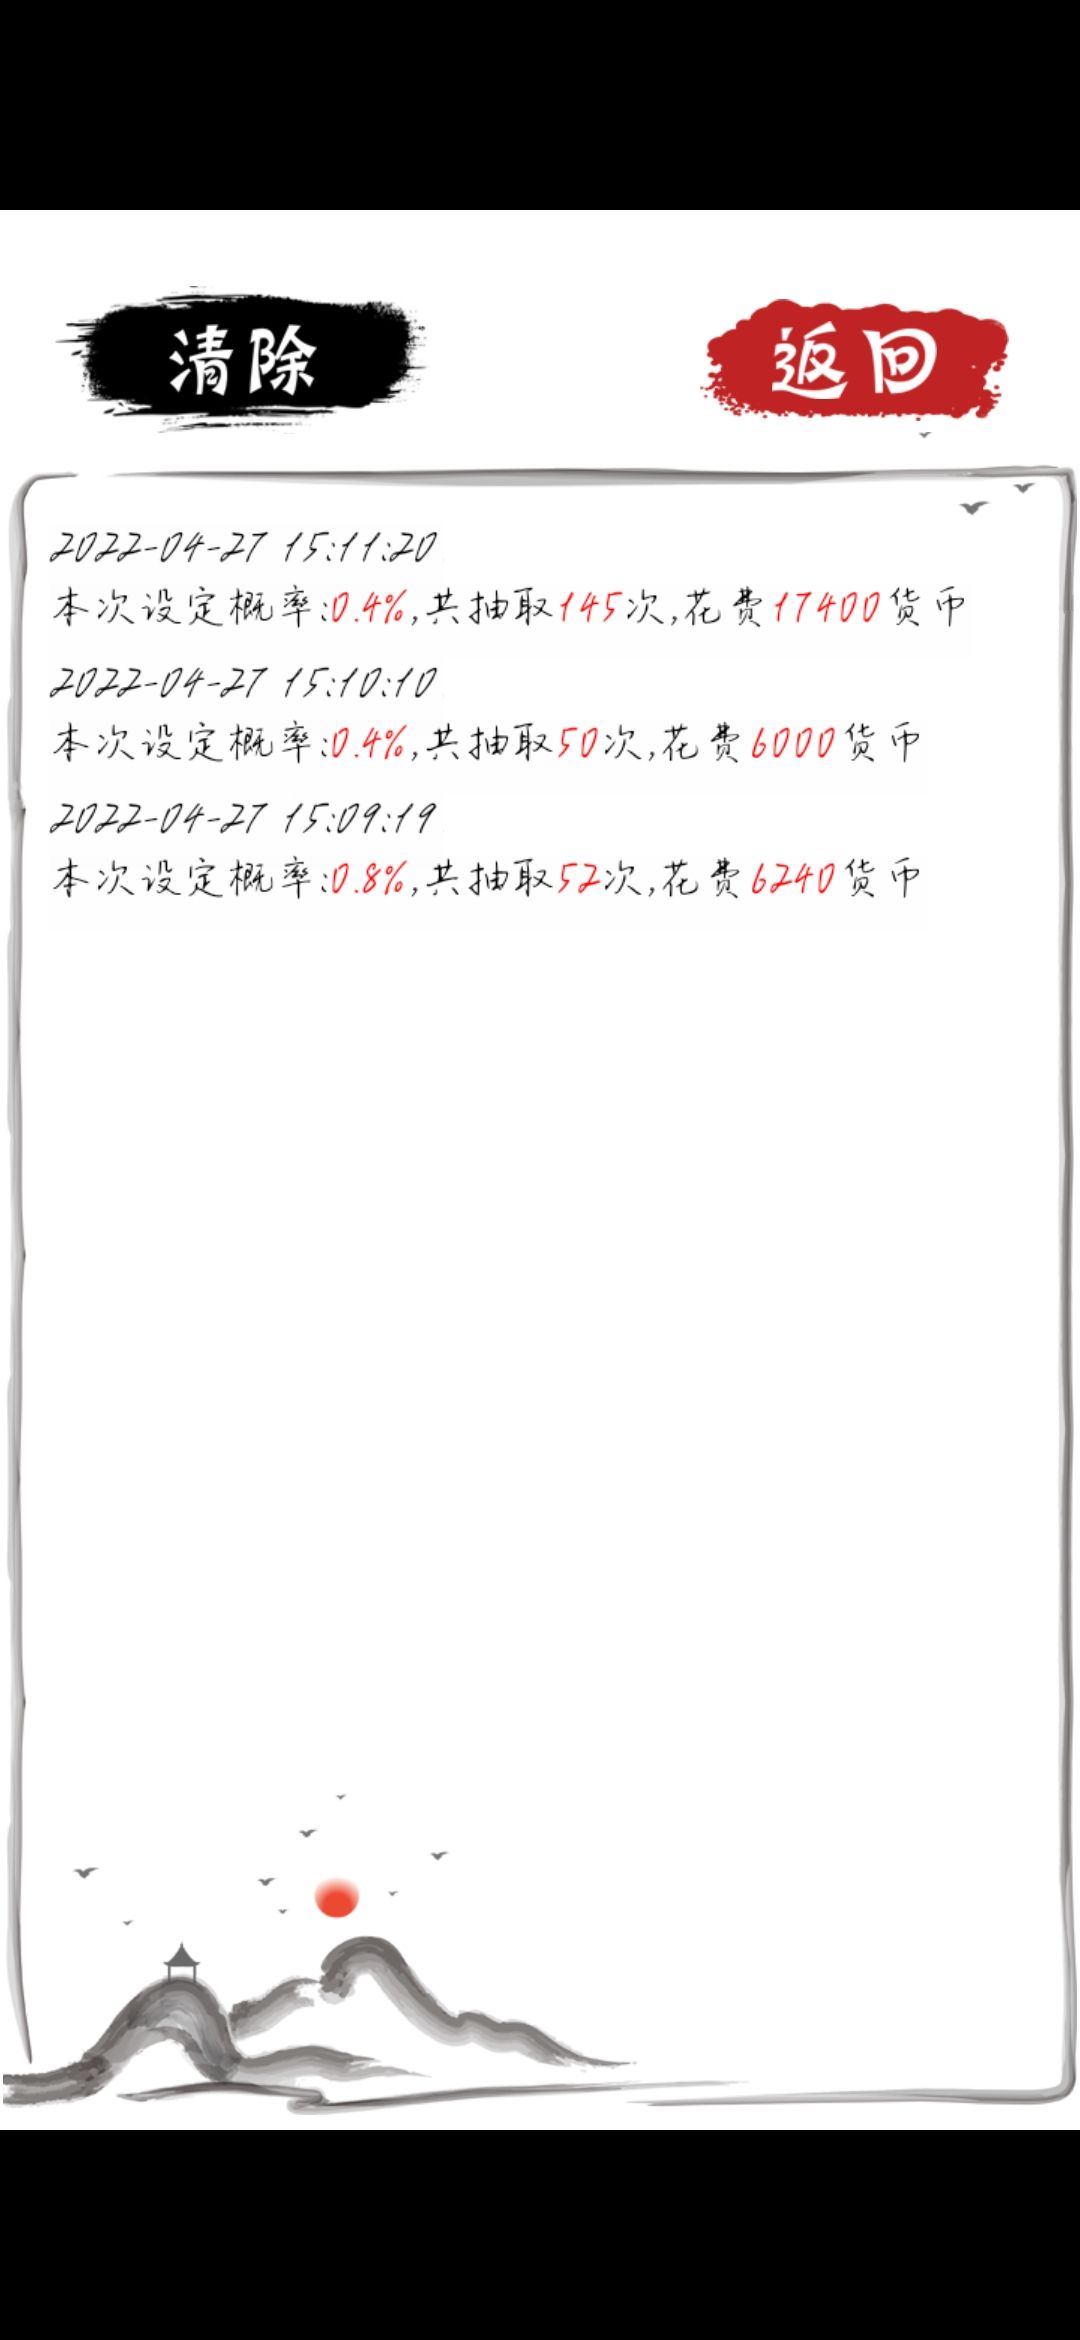 清除
返回
2022-04-27 15:11:20
本次设定概率:0.4%,共抽取145次,花费17400货币
2022-04-27 15:10:10
本次设定概率:0.4%,共抽取50次,花费6000货币
2022-04-27 15:09:19
本次设定概率:0.8%,共抽取52次,花费6240货币